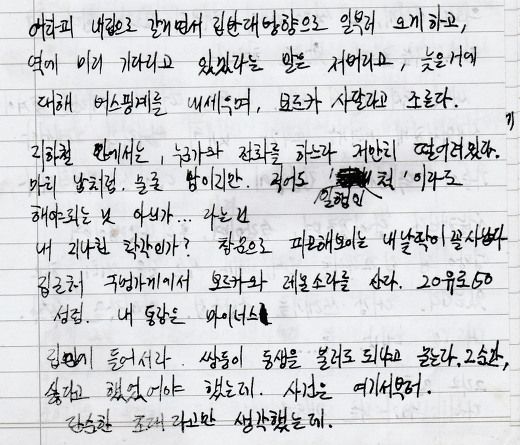 어차피 내집으로 갈거면서 집반대방향으로 일부러 오게하고,
역에 미리 기다리고 있었다는 말은 저버리고, 늦은거에
대해 버스핑계를 내세우며, 보드카 사달라고 조른다.
지하철 안에서는, 누군가와 전화를 하느라 저만치 떨어져있다.
마치 남처럼. 물론 남이지만. 적어도 '일행인 척' 이라도
해야되는 것 아닌가... 라는건
내 지나친 착각인가? 참으로 피곤해보이는 내
집근처 주변가게에서 보드카와 레몬소다를 산다. 20유로50
성렴. 내 통장은 마이너스
집에 들어서자. 쌍둥이 동생을 불러도 되냐고 묻는다. 그순간,
싫다고 했었어야 했는데. 사건은 여기서부터.
단순한 초대라고만 생각했는데.